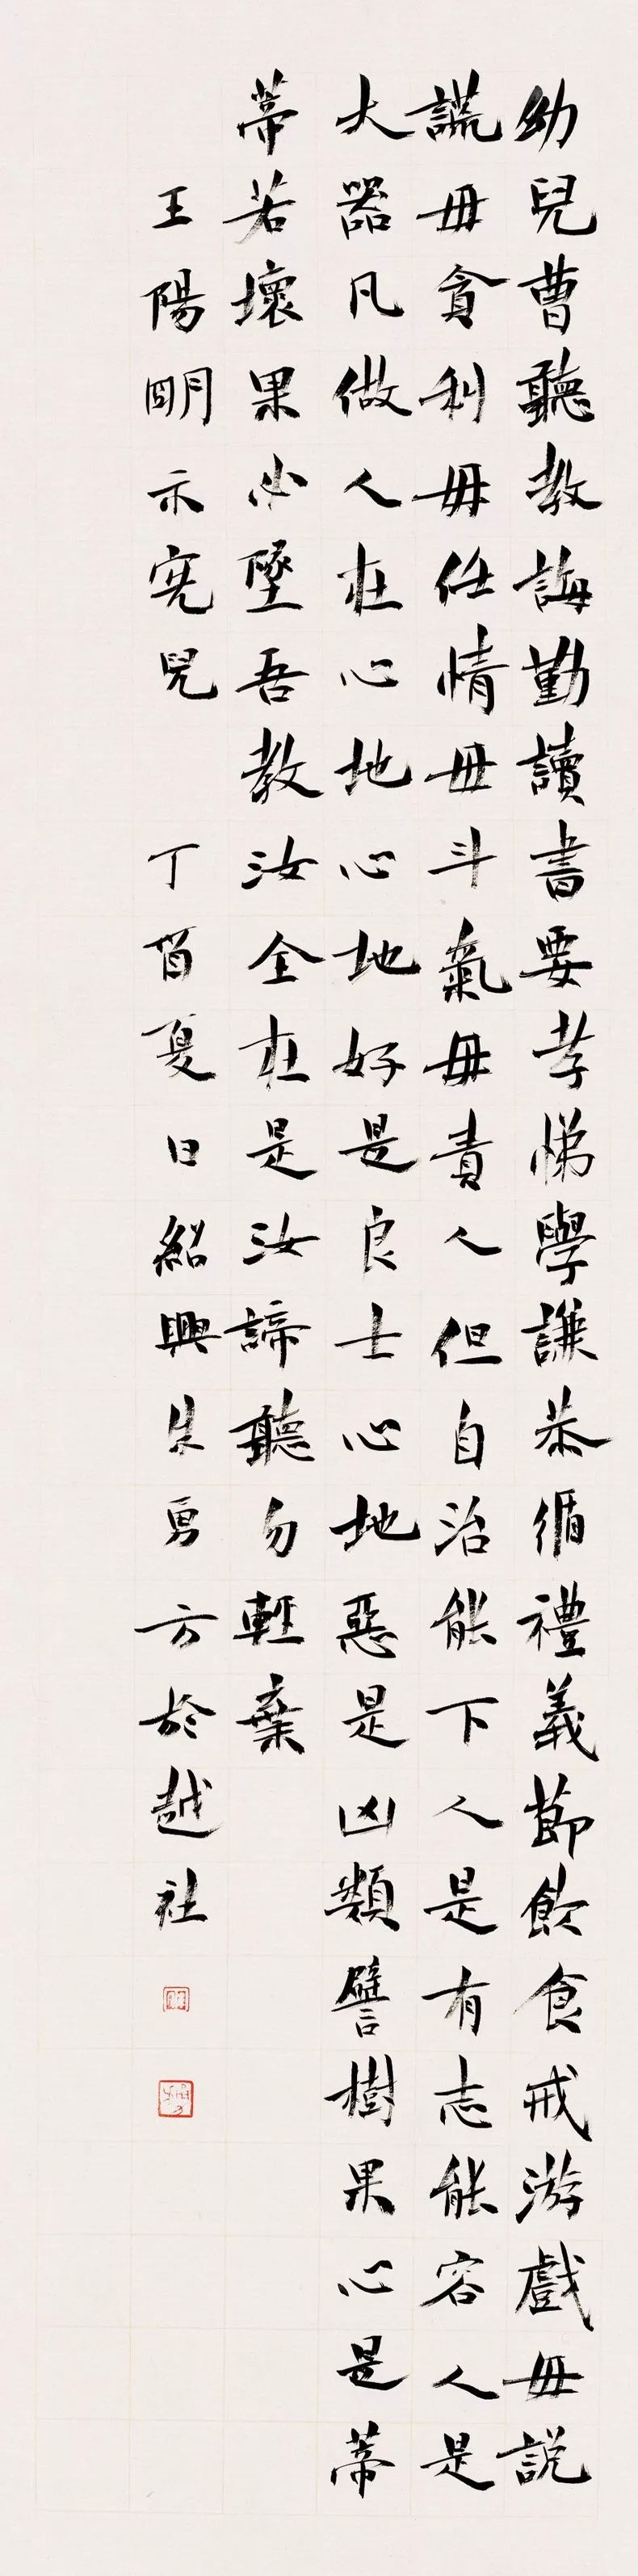 幼兒曹聽教誨勤讀書要孝悌學謙恭循禮義節飲食戒游戲毋說
謊毋貪利毋任情毋斗氣毋責人但自治能下人是有志能容人是
大器凡做人在心地心地好是良士心地惡是凶類譬樹果心是蒂
蒂若壞果必墜吾教汝全在是汝諦聽勿輕棄
王陽明示憲兒 丁酉夏日紹興朱勇方於越社